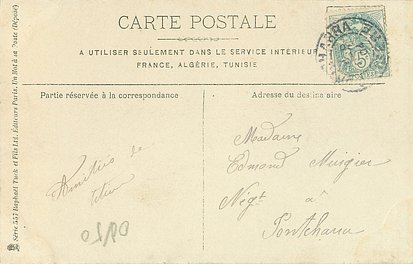 CARTE POSTALE
A UTILISER SEULEMENT DANS LE SERVICE INTÉRIEUR
FRANCE, ALGÉRIE, TUNISIE
Partie réservée à la correspondance
Adresse du destinataire
Amitiés de
Madame
Edmond
Négt à
Pontcharra
Série 557 Raphael Tuck et Fils Ltd. Éditeurs Paris.